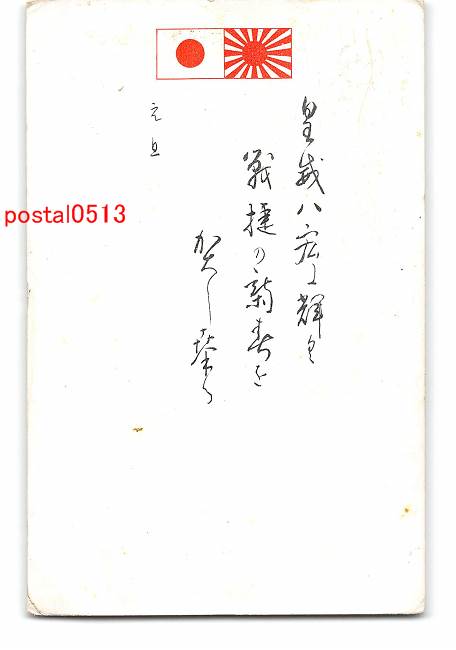 皇威八宏に輝く
戦捷の新春を
賀し奉る
元旦
postal0513